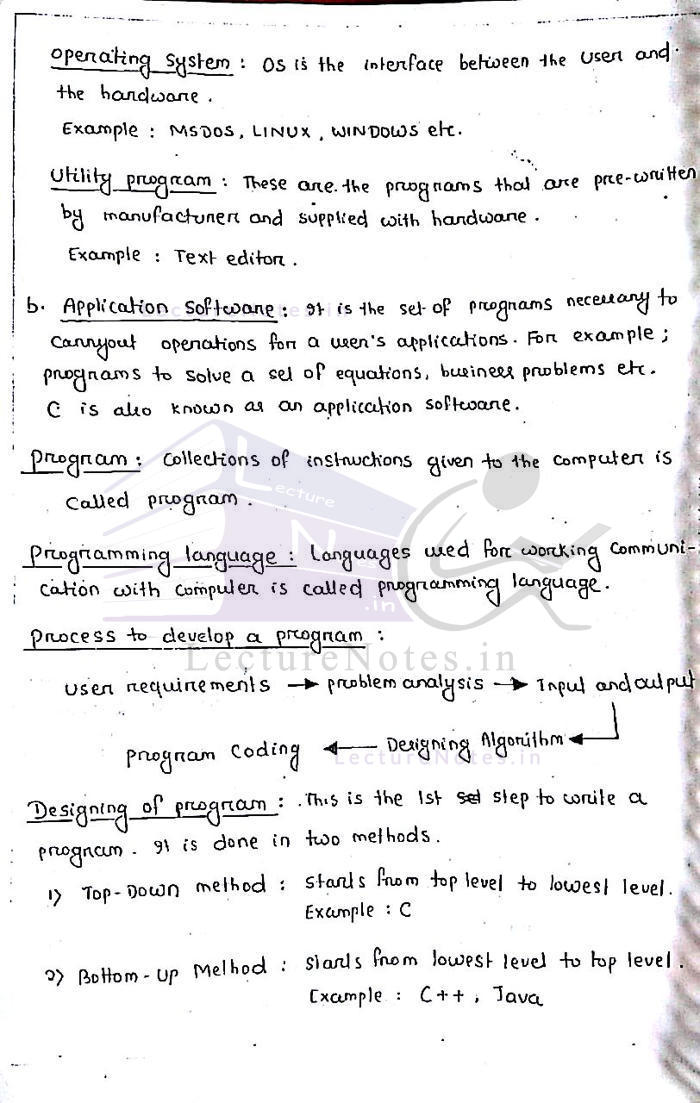 Operating System : OS is the interface between the User and
the hardware.
Example : MSDOS, LINUX, WINDOWS etc.
Utility program : These are the programs that are pre-written
by manufacturer and supplied with hardware.
Example : Text editor.
b. Application Software : It is the set of programs necessary to
carryout operations for a user's applications. For example ;
programs to solve a set of equations, business problems etc.
C is also known as an application software.
Program : Collections of instructions given to the computer is
called program.
Programming language : Languages used for working Communi-
cation with computer is called programming language.
Process to develop a program :
LectureNotes.in
User requirements → problem analysis → Input and output
Program Coding ← Designing Algorithm
LectureNotes.in
Designing of program : This is the 1st set step to write a
program. It is done in two methods.
1) Top-Down method : starts from top level to lowest level.
Example : C
2) Bottom-Up Method : starts from lowest level to top level.
Example : C++, Java